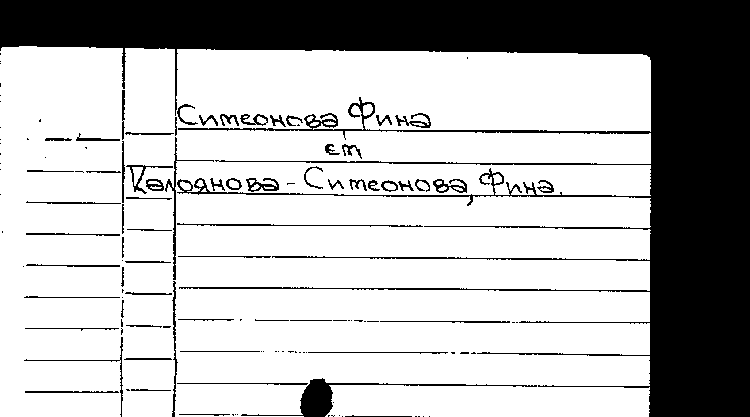 Симеонова, Фина
ст
Калоянова - Симеонова, Фина.